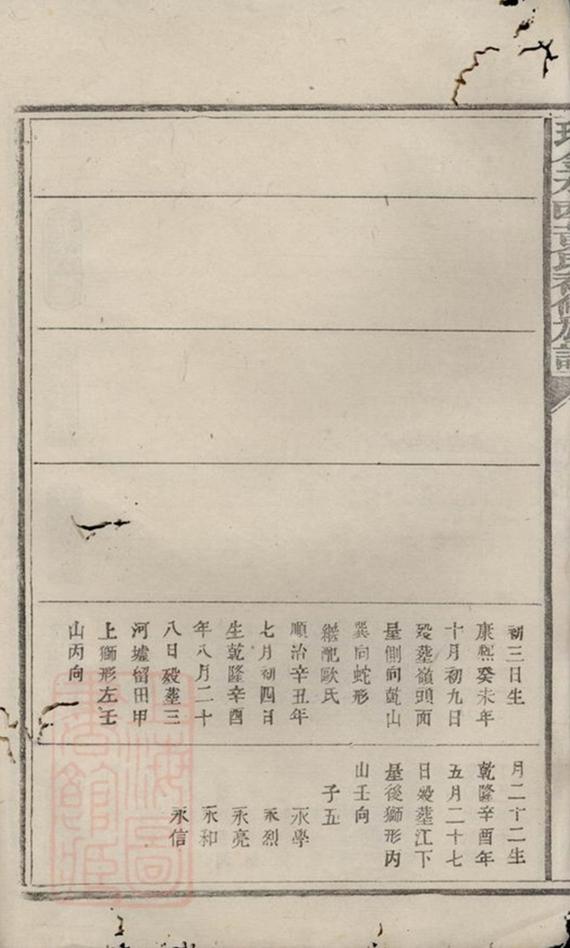 初三日生
康熙癸未年
十月初九日
歿葬嶺頭面
星側向乾山
巽向蛇形
繼配歐氏
順治辛丑年
七月初四日
生乾隆辛酉
年八月二十
八日歿葬三
河墟留田甲
上獅形左壬
山丙向
月二十二生
乾隆辛酉年
五月二十七
日歿葬江下
星後獅形丙
山壬向
子五
永學
永烈
永亮
永和
永信